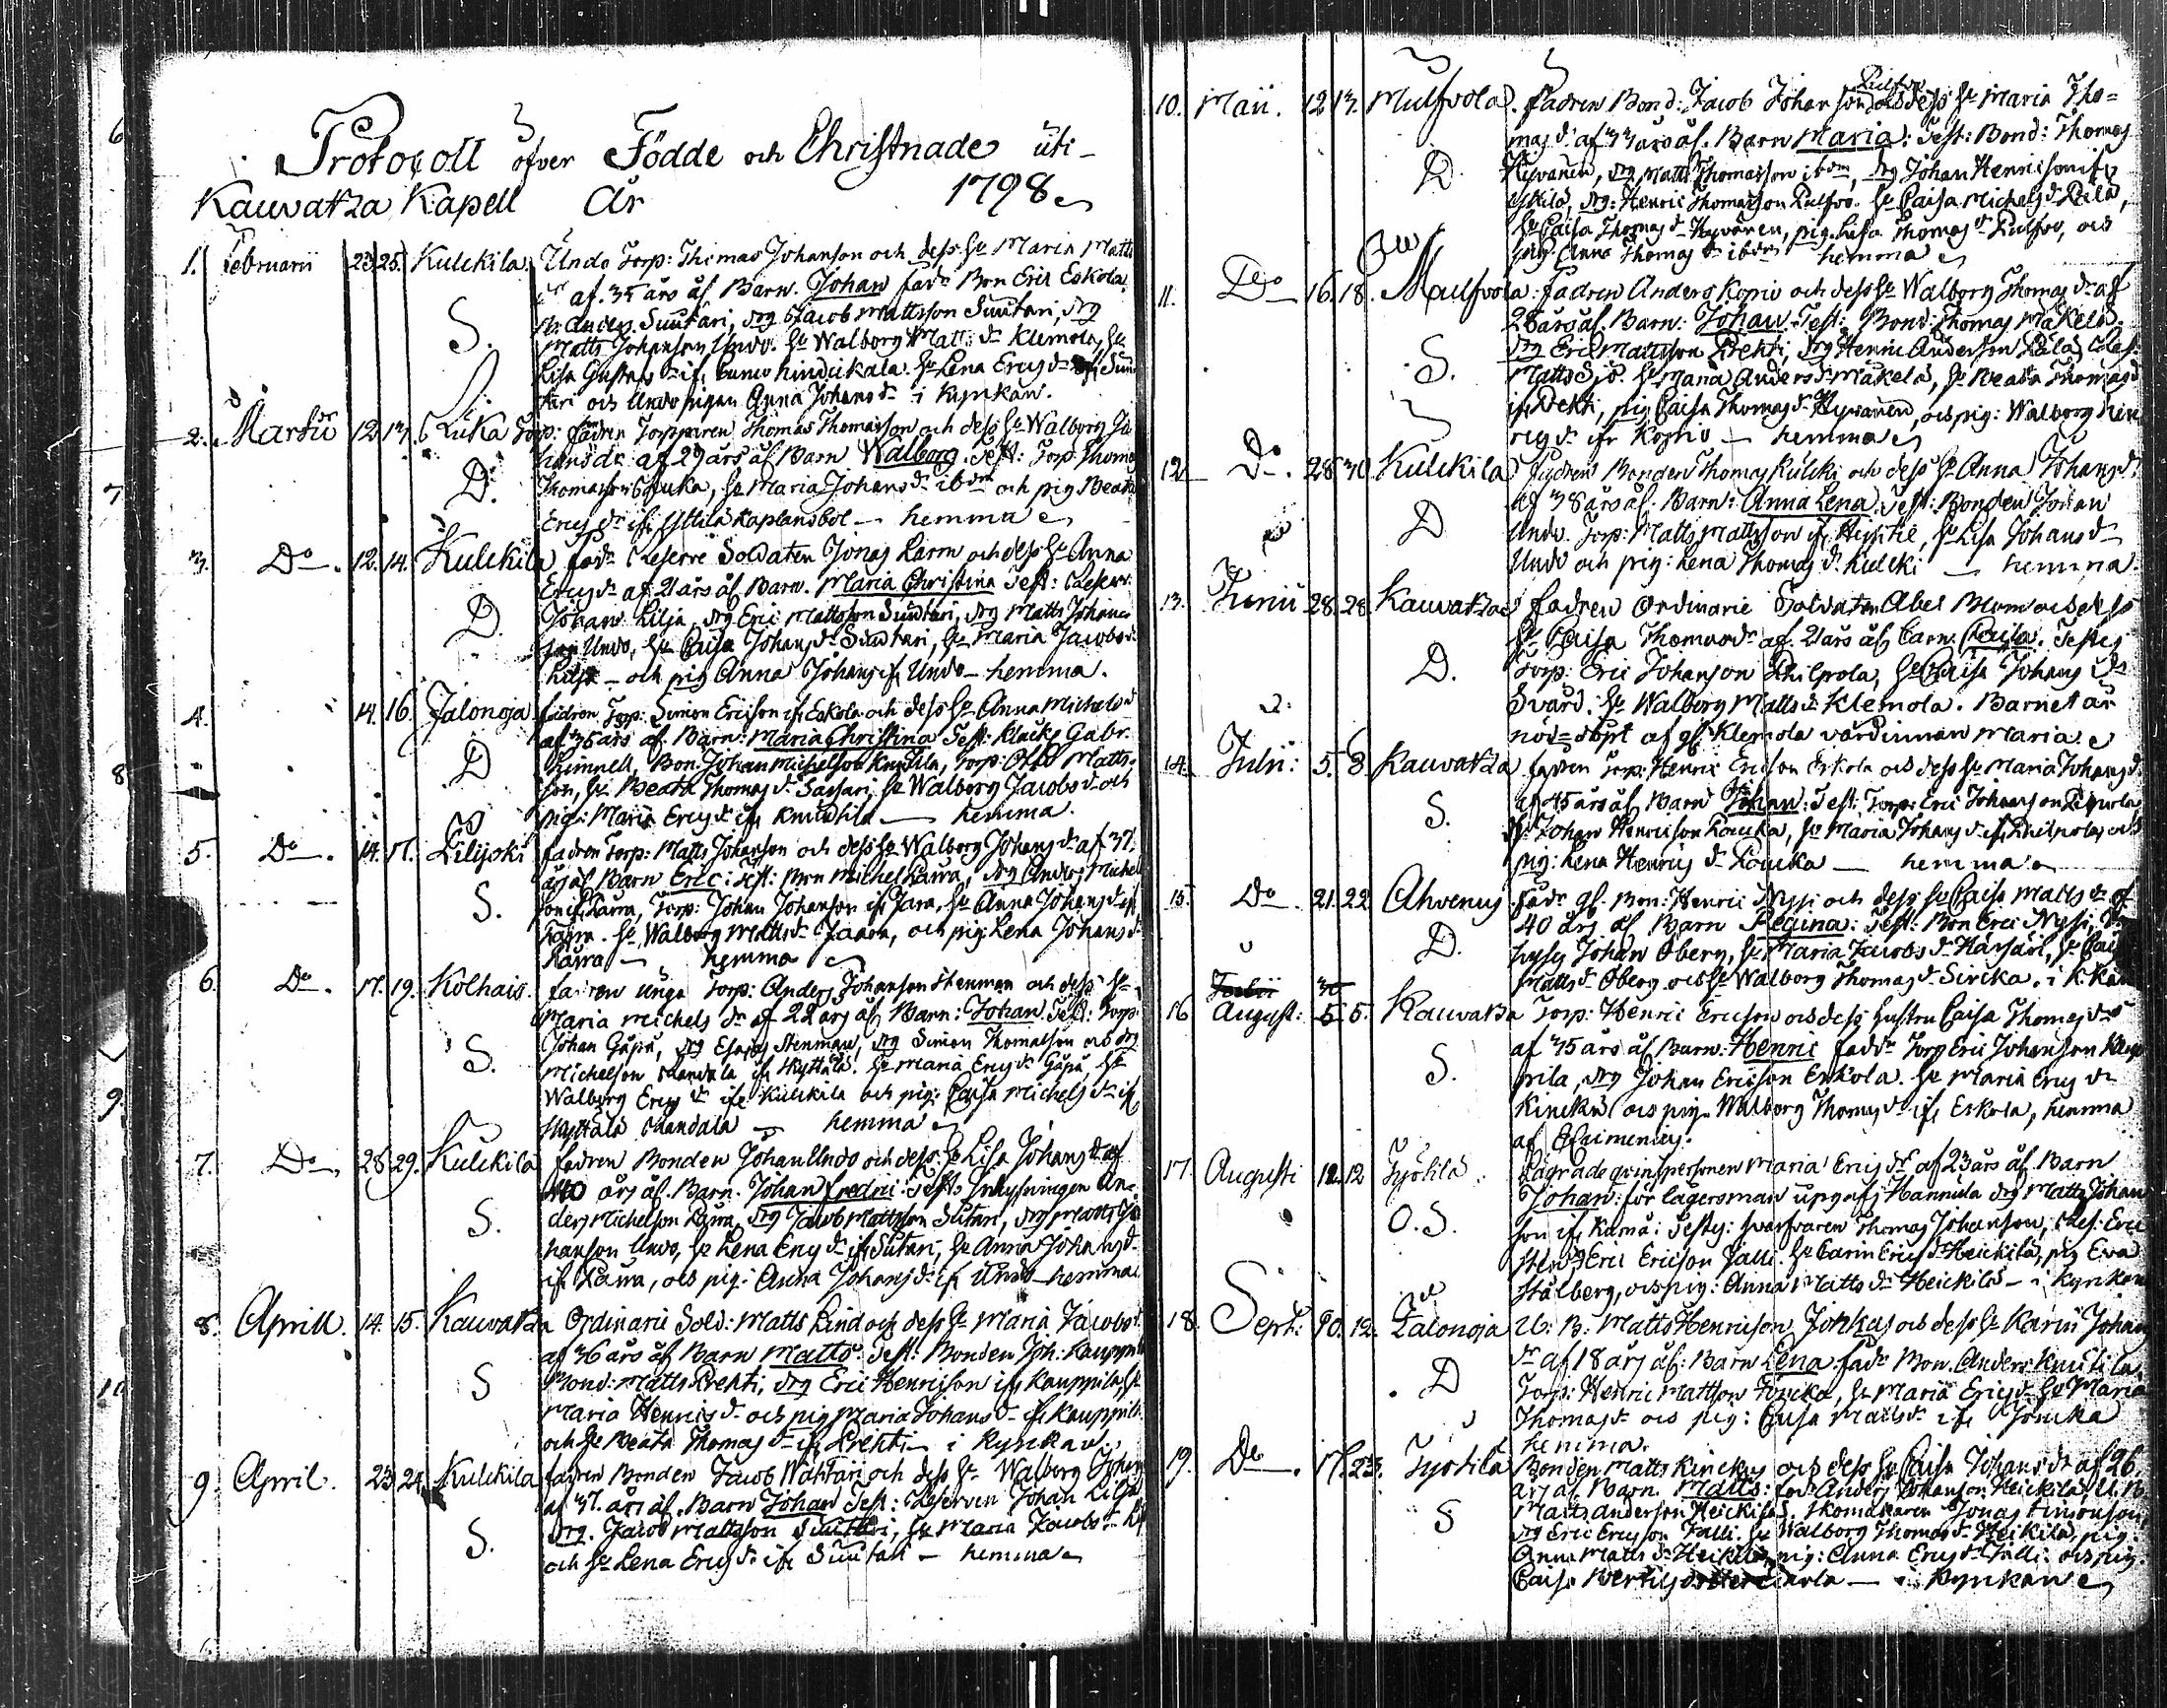 Protocoll öfver Födde och Christnade uti-
Kauvatza Kapell År 1798
1. Februarii 23 25. Kulckila. Undo Torp: Thomas Johanson och dess H Maria Matts
dr af 35 års ål. Barn. Johan fadr Bon Eric Eskola
Anders Suutari, drg Jacob Mattsson Suutari, drg
S. Matts Johanson Undo. H Walborg Matts dr Klemola, H
Lisa Gustafs dr ifr Hindickala. H Lena Ericsdr ifr Suu
tari och Undo pigan Anna Johans dr i Kyrkan.
2. Martii 12 13. Luka Torp: fadren Torpparen Thomas Thomasson och dess H Walborg Jo
hansdr af 29 års ål Barn Walborg. Test: Torp. Thoms
D. Thomasson Luka, H Maria Johansdr ibdm och pig Beata
Ericsdr ifr Yttilä Kaplansbol — hemma
3. Do. 12. 14. Kulckila fadr Reserve Soldaten Jonas Larm och dess H Anna
Ericsdr af 21 års ål Barn. Maria Christina Test: Reserv:
D. Johan Lilja, drg Eric Mattsson Suutari, drg Matts Johan
son Undo, H Caisa Johansdr Suutari, H Maria Jacobsdr
Lilja — och pig Anna Johans ifr Undo — hemma.
4. 14. 16. Jalonoja fadren Torp: Simon Ericson ifr Eskola och dess H Anna Michelsd
af 36 års ål. Barn: Maria Christina Test: Klock Gabr.
D Kinnell, Bon: Johan Michelson Knutila, Torp: Otto Matts
son, H Beata Thomasdr Sassari, H Walborg Jacobsdr och
pig: Maria Ericsdr ifr Knuthila — hemma.
5. Do. 14. 17. Lilijoki fadren Torp: Matts Johanson och dess H Walborg Johansdr af 37.
års ål Barn Eric: Test: Bon Michel Laura, drg Anders Michel
S. son ifr Laura, Torp: Johan Johanson ifr Jara, H Anna Johansdr ifr
Laura. H Walborg Mattsdr Jaara, och pig: Lena Johansd
Laura — hemma
6. Do. 17. 19. Kolhais. fadren unga Torp: Anders Johanson Stenman och dess H
Maria Michels dr af 22 års ål Barn: Johan Test: Torp:
S. Johan Gåpå, drg Esaias Stenman, drg Simon Thomasson och drg
Michelson Mandala ifr Skyttälä. H Maria Ericsdr Gåpå, H
Walborg Ericsdr ifr Kulckila och pig: Caisa Michelsdr ifr
Skyttälä Mandala — hemma
7. Do. 28. 29. Kulckila fadren Bonden Johan Undo och dess H Lisa Johansdr af
40 års ål. Barn. Johan Fredric: Tests Inhysningen An-
S. ders Michelson Laura, drg Jacob Mattsson Sutari, drg Matts Jo
hanson Undo, H Lena Ericsdr ifr Sutari, H Anna Johansd
ifr Laura, och pig: Anna Johansdr ifr Undo — hemma
8. Aprill. 14. 15. Kauvatza Ordinarie Sold: Matts Lind och dess H Maria Jacobsd
af 36 års ål Barn Matts: Test: Bonden Joh: Kauppil
S Bond: Matts Prekti, drg Eric Henricson ifr Kauppila, H
Maria Henricsdr och pig Maria Johansdr ifr Kauppila
och H Beata Thomasdr ifr Prekti — i Kyrkan.
9. April. 23 24. Kulckila fadren Bonden Jacob Wahtari och dess H Walborg Johans
af 37. års ål. Barn Johan Test: Reserven Johan Lilja
S. drg. Jacob Mattsson Suutari, H Maria Jacobsdr
och H Lena Ericsdr ifr Suutari — hemma
10. Maii. 12 13. Mulfvola. fadren Bond: Jacob Johanson och dess H Maria Tho=
mas dr af 33 års ål. Barn Maria: Test: Bond: Thomas
D. Hyvänen, drg Matts Thomasson ibdm, drg Johan Henricson ifr
Yttilä, drg: Henric Thomasson Pulfvo. H Caisa Michelsdr Pälä,
H Caisa Thomasdr Hyvänen, pig. Lisa Thomasdr Pulfvo, och
pig: Anna Thomasdr ibdm hemma
11. Do 16. 18. Mulfvola: fadren Anders Koprio och dess H Walborg Thomasdr af
28 års ål. Barn: Johan. Test: Bond: Thomas Mäkelä.
S. drg Eric Mattsson Prekti, drg Henric Anderson Pälä, Res:
Matts Sjö. H Maria Andersdr Mäkelä, H Beata Thomasd
ifr Prekti, pig Caisa Thomasdr Hyvänen, och pig: Walborg Hen
ricsdr ifr Koprio — hemma
12 Do. 28 30 Kulckila fadren Bonden Thomas Kulcki och dess H Anna Johansd.
af 38 års ål. Barn: Anna Lena: Test: Bonden Johan
D Undo. Torp: Matts Mattsson ifr, H Lisa Johansdr
Undo och pig: Lena Thomasdr Kulcki — hemma.
13. Junii 28. 28 Kauvatza fadren Ordinarie Soldaten Abel Blom och dess
H Caisa Thomasdr af 21 års ål Barn. Caisa. Testes
D. Torp: Eric Johanson Philpola, H Caisa Johans dr
Svärd. H Walborg Mattsdr Klemola. Barnet är
nöd=döpt af gl. Klemola värdinnan Maria.
14. Julii: 5. 8 Kauvatza fadren Torp: Henric Ericson Eskola och dess H Maria Johansd
S. af 45 års ål Barn Johan: Test: Torp: Eric Johanson Philpola
dr: Johan Henricson Loucka, H Maria Johansdr ifr Philpola, och
pig: Lena Henricsdr Loucka — hemma
15. Do. 21. 22 Ahvenus fadr gl. Bon: Henric Nysi och dess H Caisa Matts dr af
40 års ål Barn Regina: Test: Bon Eric Nysi,
D. Johan Oberg, H Maria Jacobsdr Harjari, H Cai
Mattsdr Oberg och H Walborg Thomasdr Sirika. i K.
16 August: 5. Kauvatza Torp: Henric Ericson och dess hustru Caisa Thomasdr
af 35 års ål Barn: Henric faddr Torp Eric Johanson
S. pila, drg Johan Ericson Eskola. H Maria Erics dr
Kincku och pig. Walborg Thomasdr ifr Eskola, hemma
af
17. Augusti 12. 12 Työtilä Lägrade qvinspersonen Maria Ericsdr af 23 års ål. Barn
Johan: för lägersman upgafs Hannula drg Matts Johan
O. S. son ifr Kama: Testes: svarfvaren Thomas Johanson, Res: Eric
Sten, Eric Ericson Jalli. H Carin Ericsdr Heickilä, pig Eva
Stålberg, och pig: Anna Mattsdr Heickilä — i Kyrkan
18. Sept: 10. 12. Jalonoja U: B: Matts Henricson Johkas och dess H Karin Johans
dr af 18 års ål: Barn Lena fadr Bon. Anders Knutila,
D Torp: Henric Mattsson Joucka, H Maria Ericsdr H Maria
Thomasdr och pig: Caisa Mattsdr ifr Joucka
hemma.
19. Do. 17. 23. Työtilä Bonden Matts Kinckus och dess H Caisa Johansdr af 26
års ål. Barn. Matts: fadr Anders Johanson Heickilä
S Matts Anderson Heickilä. Skomakaren Jonas Simonson,
drg Eric Ericson Jalli. H Walborg Thomasdr Heickilä, pig:
Anna Mattsdr Heickilä, pig: Anna Ericsdr Jalli: och pig.
Caisa — i Kyrkan